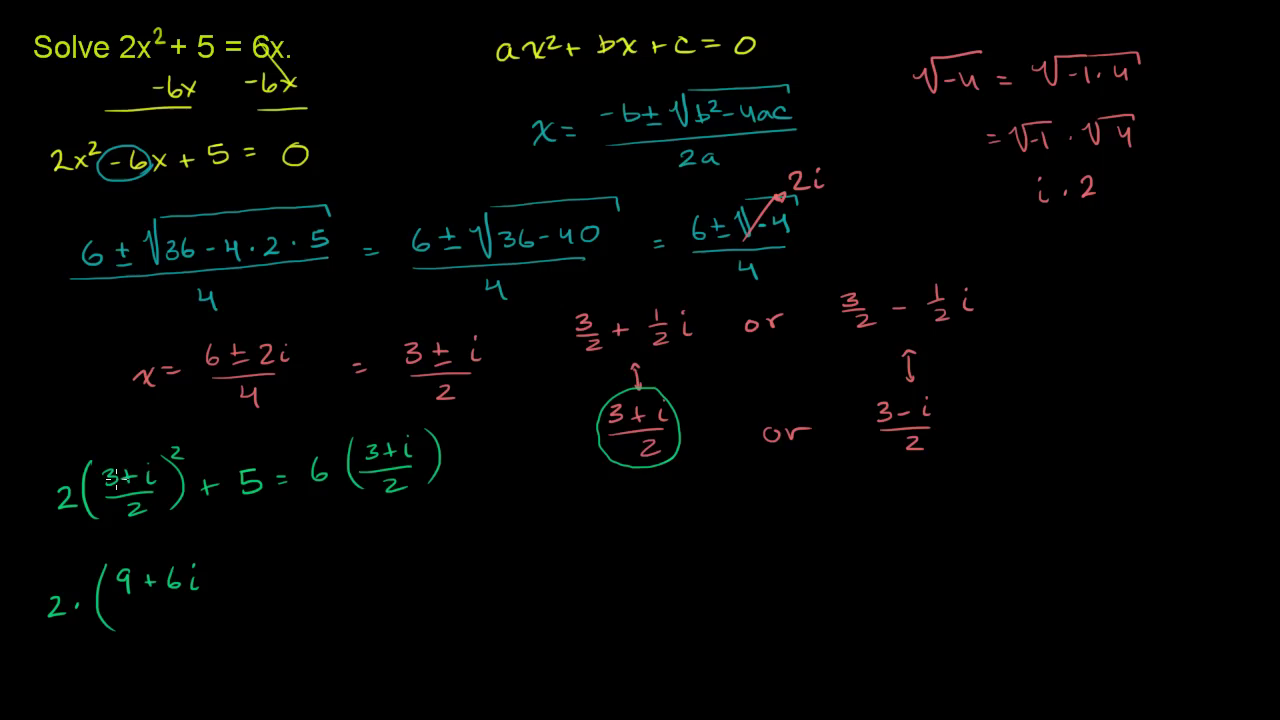 Solve 2x² + 5 = 6x.
-6x -6x
2x² - 6x + 5 = 0
ax² + bx + c = 0
x = (-b ± √(b² - 4ac)) / 2a
√-4 = √(-1 · 4)
= √-1 · √4
i · 2
(6 ± √(36 - 4 · 2 · 5)) / 4 = (6 ± √(36 - 40)) / 4 = (6 ± √-4) / 4
2i
x = (6 ± 2i) / 4 = (3 ± i) / 2
3/2 + 1/2 i or 3/2 - 1/2 i
(3 + i) / 2 or (3 - i) / 2
2((3 + i) / 2)² + 5 = 6((3 + i) / 2)
2 · (9 + 6i